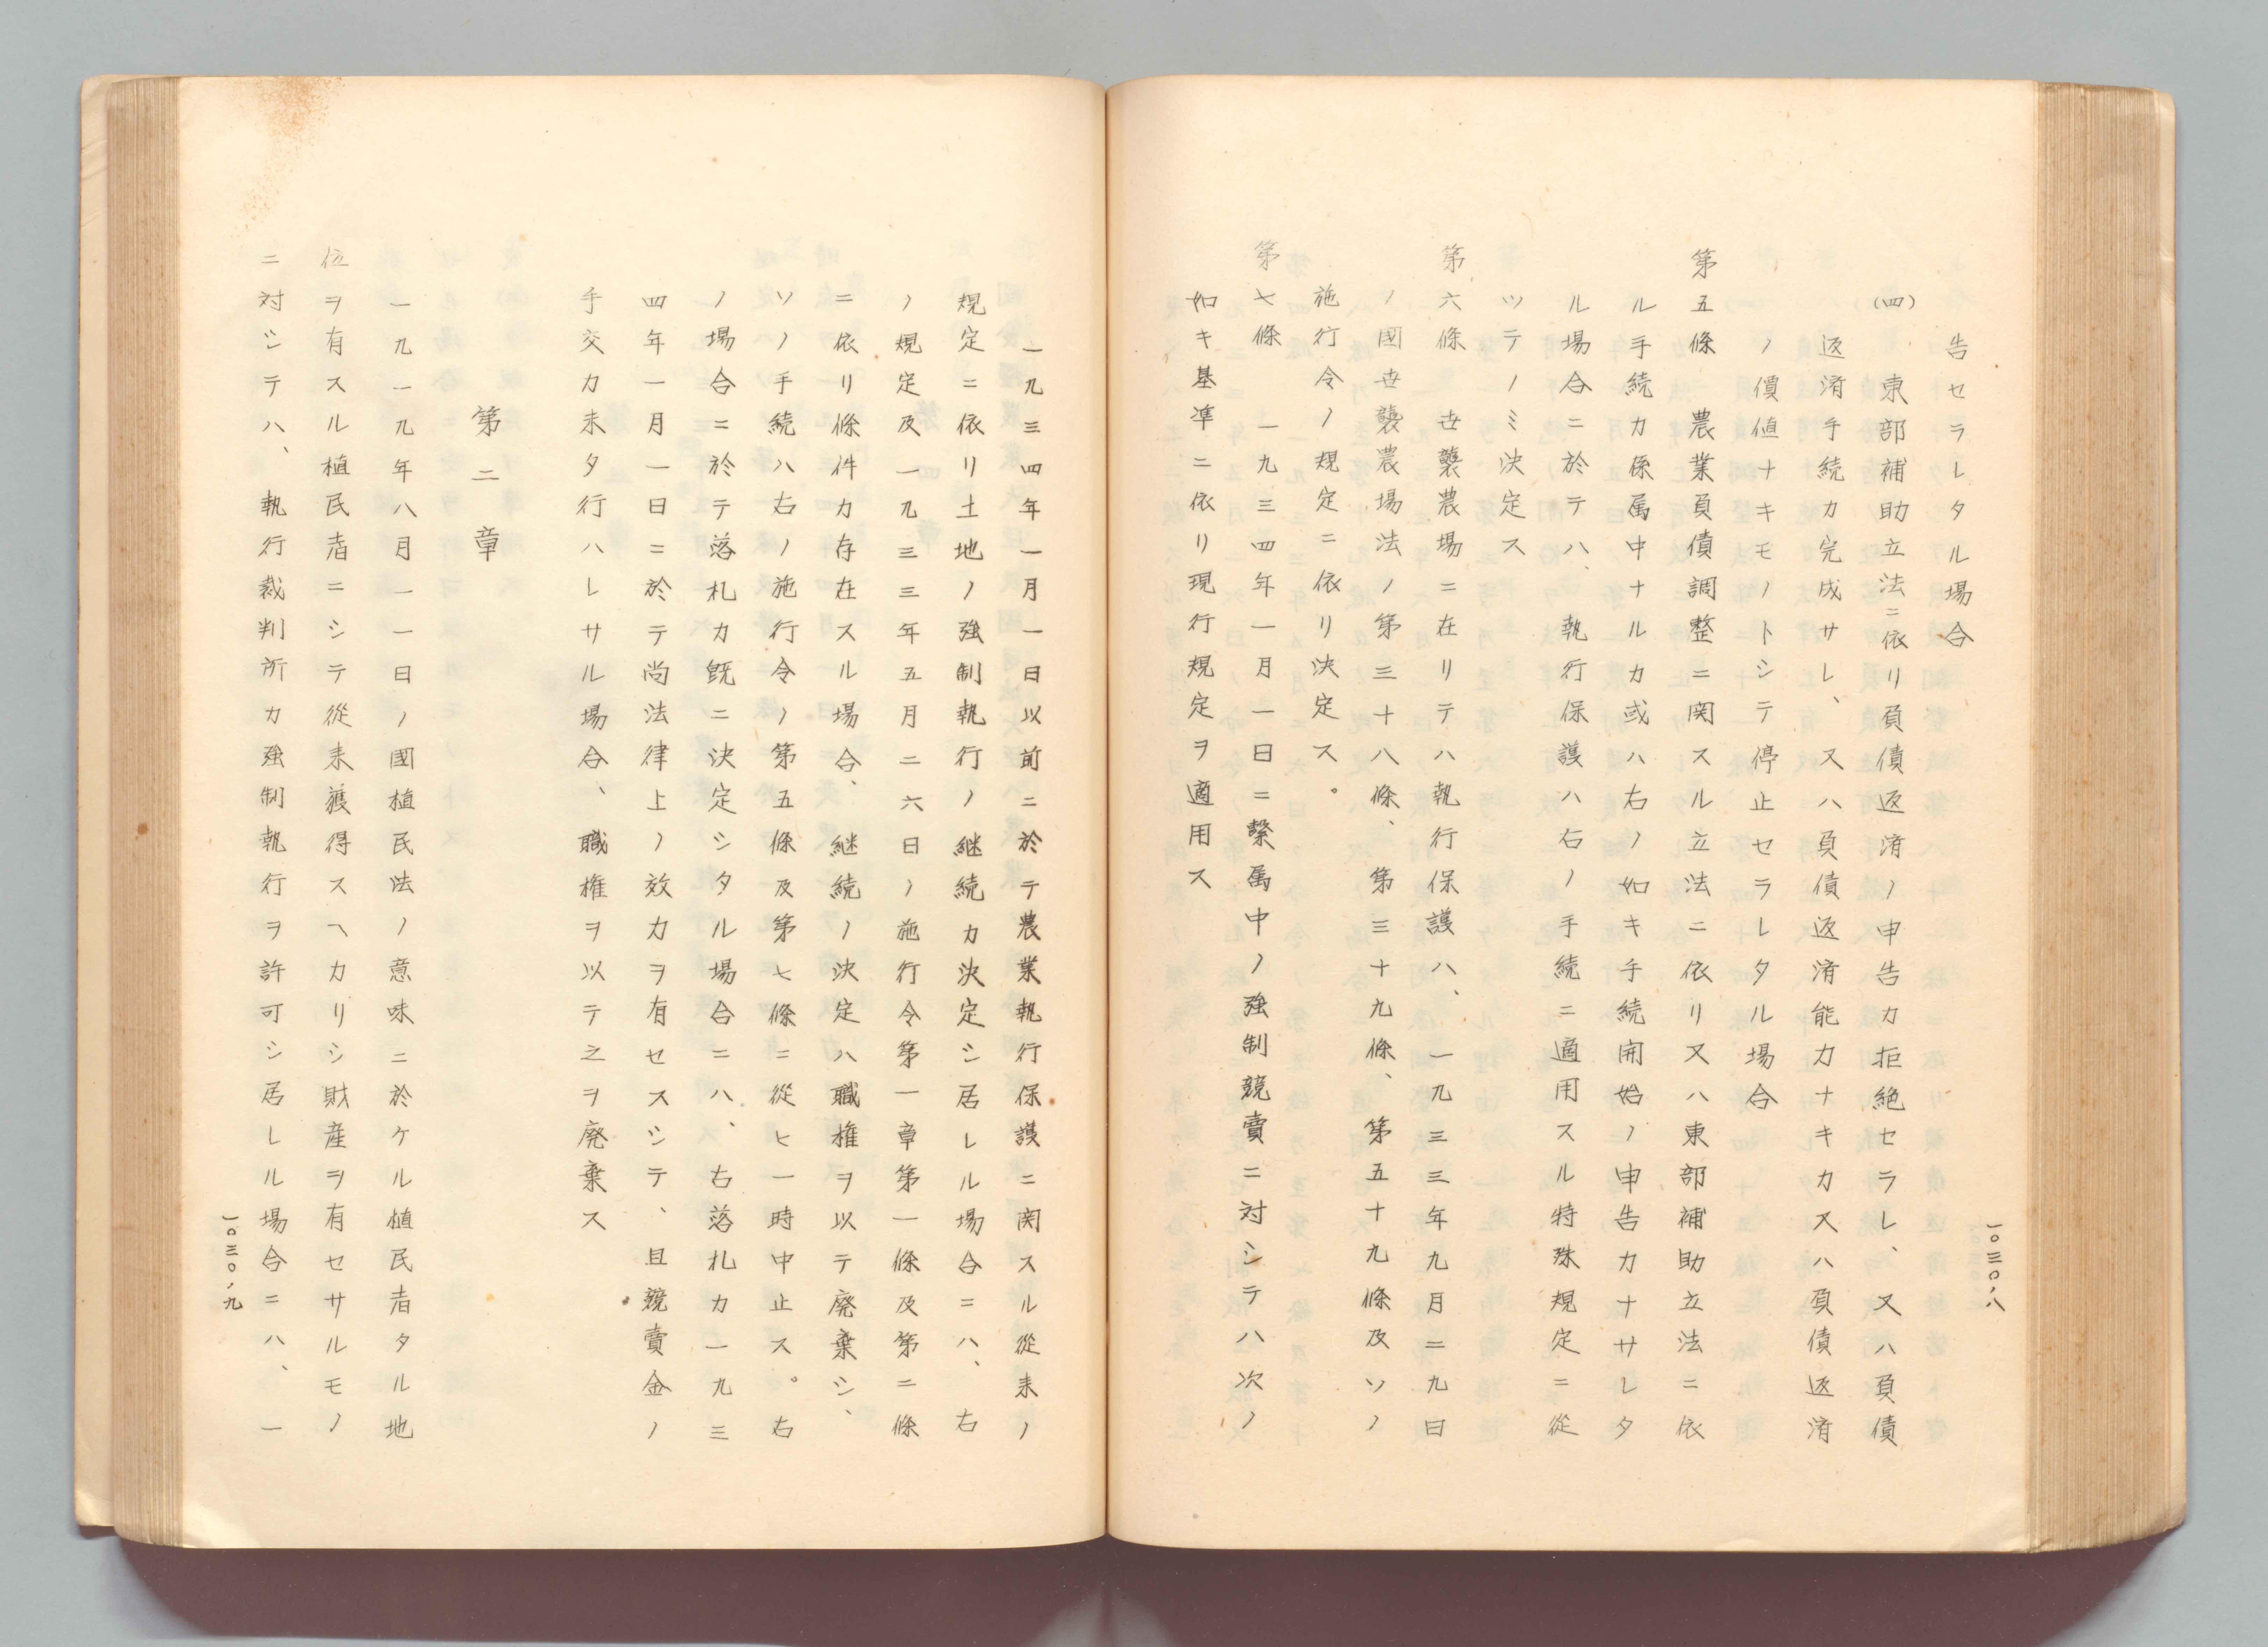 告セラレタル場合
(四)　東部補助立法ニ依リ負債返済ノ申告カ拒絶セラレ、又ハ負債
返済手続カ完成サレ、又ハ負債返済能力ナキカ又ハ負債返済
ノ價値ナキモノトシテ停止セラレタル場合
第五條　農業負債調整ニ関スル立法ニ依リ又ハ東部補助立法ニ依
ル手続カ係属中ナルカ或ハ右ノ如キ手続開始ノ申告カナサレタ
ル場合ニ於テハ、執行保護ハ右ノ手続ニ適用スル特殊規定ニ從
ツテノミ決定ス
第六條　世襲農場ニ在リテハ執行保護ハ、一九三三年九月二九日
ノ國世襲農場法ノ第三十八條、第三十九條、第五十九條及ソノ
施行令ノ規定ニ依リ決定ス。
第七條　一九三四年一月一日ニ繫属中ノ強制競賣ニ対シテハ次ノ
如キ基準ニ依リ現行規定ヲ適用ス
一〇三〇、八
一九三四年一月一日以前ニ於テ農業執行保護ニ関スル從来ノ
規定ニ依リ土地ノ強制執行ノ継続カ決定シ居レル場合ニハ、右
ノ規定及一九三三年五月二六日ノ施行令第一章第一條及第二條
ニ依リ條件カ存在スル場合、継続ノ決定ハ職権ヲ以テ廃棄シ、
ソノ手続ハ右ノ施行令ノ第五條及第七條ニ從ヒ一時中止ス。右
ノ場合ニ於テ落札カ既ニ決定シタル場合ニハ、右落札カ一九三
四年一月一日ニ於テ尚法律上ノ效力ヲ有セスシテ、且競賣金ノ
手交カ未タ行ハレサル場合、職権ヲ以テ之ヲ廃棄ス
第二章
一九一九年八月一一日ノ國植民法ノ意味ニ於ケル植民者タル地
位ヲ有スル植民者ニシテ從来獲得スヘカリシ財産ヲ有セサルモノ
ニ対シテハ、執行裁判所カ強制執行ヲ許可シ居レル場合ニハ、一
一〇三〇、九